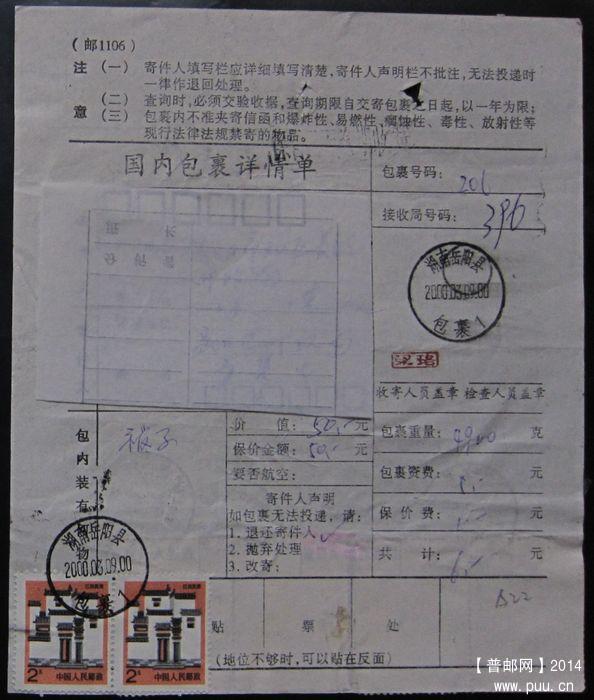 （邮1106）
注 （一） 寄件人填写栏应详细填写清楚，寄件人声明栏不批注，无法投递时
一律作退回处理。
（二） 查询时，必须交验收据，查询期限自交寄包裹之日起，以一年为限；
意 （三） 包裹内不准夹寄信函和爆炸性、易燃性、腐蚀性、毒性、放射性等
现行法律法规禁寄的物品。
国内包裹详情单
包裹号码： 206
接收局号码： 396
湖南岳阳县
2000.03.09.00
包裹1
收寄人员盖章 检查人员盖章
包内装有何物
被子
价 值： 50.- 元
保价金额： 50.- 元
要否航空：
寄件人声明
如包裹无法投递，请：
1. 退还寄件人 ✓
2. 抛弃处理
3. 改寄：
包裹重量： 4900 克
包裹资费： 5.- 元
保价费： 1.- 元
共 计： 6.- 元
湖南岳阳县
2000.03.09.00
包裹1
贴 票 处
（地位不够时，可以贴在反面）
江苏民居
2分
中国人民邮政
江苏民居
2分
中国人民邮政
【普邮网】2014
www.puu.cn